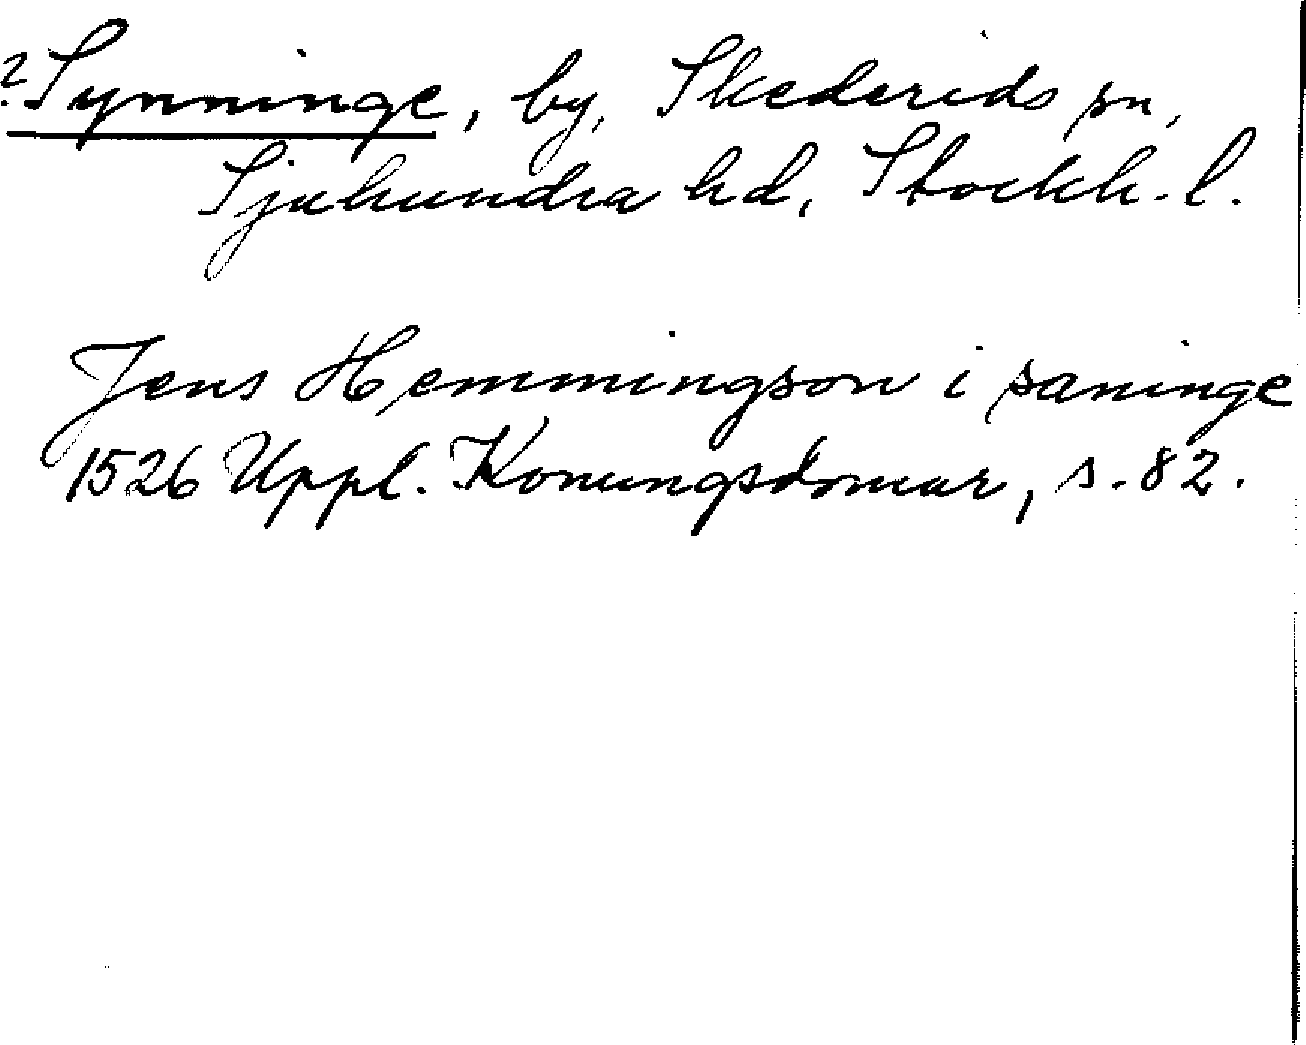 ? Synninge, by, Skederids sn,
Sjuhundra hd, Stockh. l.
Jens Hemmingson i saninge
1526 Uppl. Konungsdomar, s. 82.